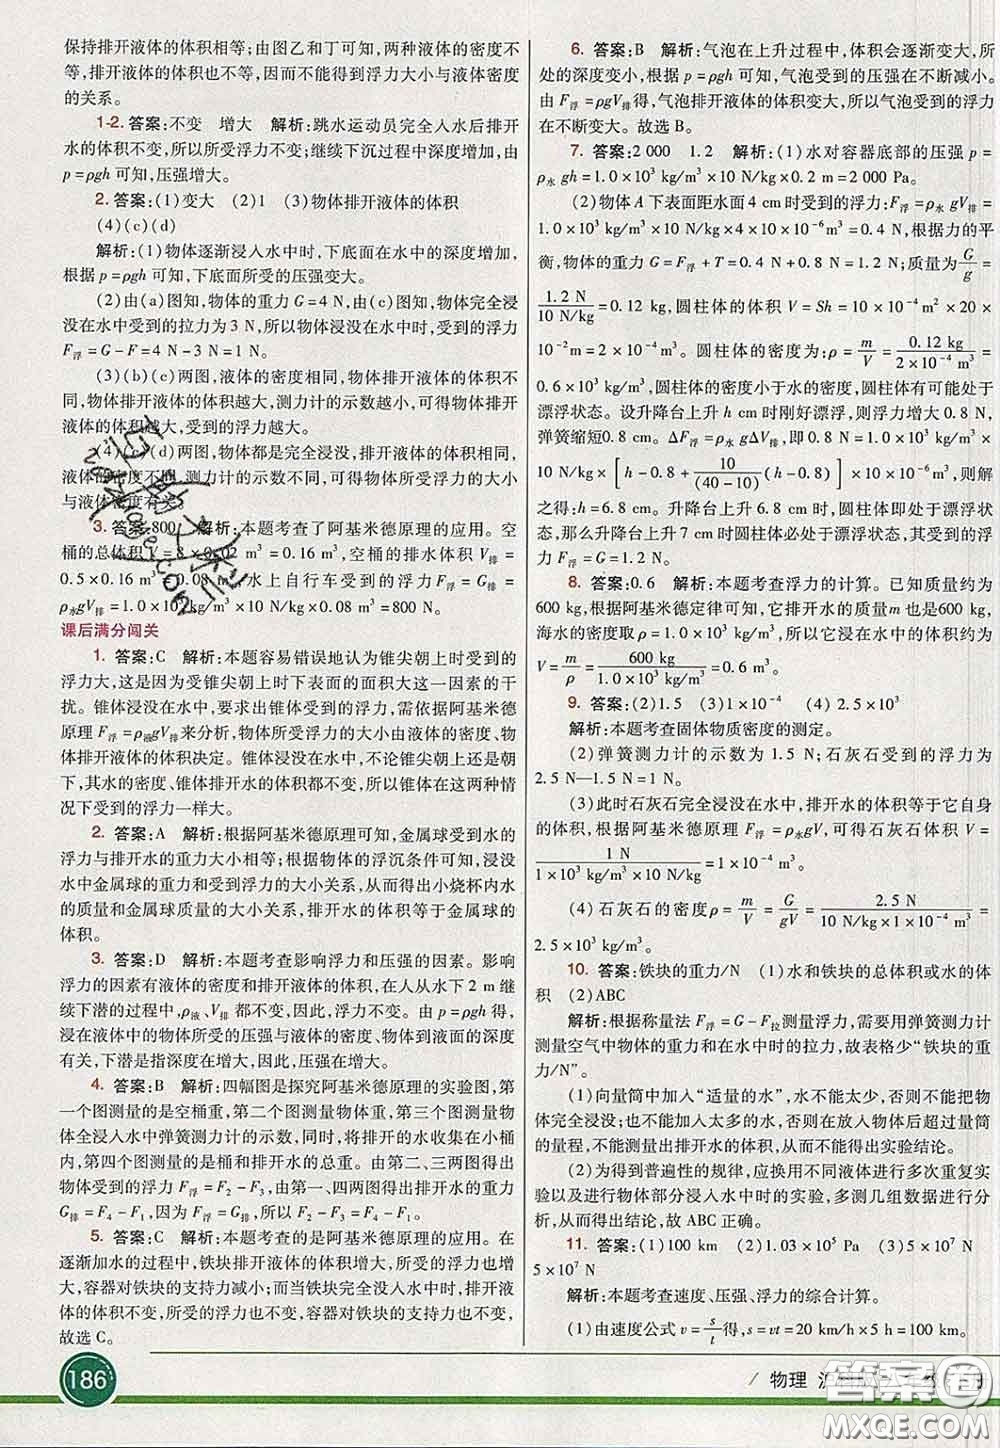 保持排开液体的体积相等;由图乙和丁可知,两种液体的密度不
等,排开液体的体积也不等,因而不能得到浮力大小与液体密度
的关系。
1-2. 答案:不变 增大 解析:跳水运动员完全入水后排开
水的体积不变,所以所受浮力不变;继续下沉过程中深度增加,由
p=ρgh 可知,压强增大。
2. 答案:(1)变大 (2)1 (3)物体排开液体的体积
(4)(c)(d)
解析:(1)物体逐渐浸入水中时,下底面在水中的深度增加,
根据 p=ρgh 可知,下底面所受的压强变大。
(2)由(a)图知,物体的重力 G=4 N,由(c)图知,物体完全浸
没在水中受到的拉力为 3 N,所以物体浸没在水中时,受到的浮力
F浮=G-F=4 N-3 N=1 N。
(3)(b)(c)两图,液体的密度相同,物体排开液体的体积不
同,物体排开液体的体积越大,测力计的示数越小,可得物体排开
液体的体积越大,受到的浮力越大。
(4)(c)(d)两图,物体都是完全浸没,排开液体的体积相同,
液体的密度不同,测力计的示数不同,可得物体所受浮力的大小
与液体密度有关。
3. 答案:800 解析:本题考查了阿基米德原理的应用。空
桶的总体积 V=8×0.02 m³=0.16 m³,空桶的排水体积 V排=
0.5×0.16 m³=0.08 m³,水上自行车受到的浮力 F浮=G排=
ρ水gV排=1.0×10³ kg/m³×10 N/kg×0.08 m³=800 N。
课后满分闯关
1. 答案:C 解析:本题容易错误地认为锥尖朝上时受到的
浮力大,这是因为受锥尖朝上时下表面的面积大这一因素的干
扰。锥体浸没在水中,要求出锥体受到的浮力,需依据阿基米德
原理 F浮=ρ液gV排来分析,物体所受浮力的大小由液体密度与排
开液体的体积决定。锥体浸没在水中,不论锥尖朝上还是朝下,
其水的密度、锥体排开水的体积都不变,因此,锥体在这两种情
况下受到的浮力一样大。
2. 答案:A 解析:根据阿基米德原理可知,金属球受到水的
浮力与排开水的重力大小相等;根据物体的浮沉条件可知,浸没
水中金属球的重力和受到浮力的大小关系,从而得出小烧杯内水
的质量和金属球质量的大小关系,排开水的体积等于金属球的
体积。
3. 答案:D 解析:本题考查影响浮力和压强的因素。影响
浮力的因素有液体的密度和排开液体的体积。在人从水下 2 m 继
续下潜的过程中,ρ液、V排都不变,因此,浮力不变。由 p=ρgh 得,
浸在液体中的物体所受的压强与液体的密度、物体到液面的深度
有关,下潜是指深度在增大,因此,压强在增大。
4. 答案:B 解析:四幅图是探究阿基米德原理的实验图,第
一个图测量的是空桶重,第二个图测量物体重,第三个图测量物
体全浸入水中弹簧测力计的示数,同时,将排开的水收集在小桶
内,第四个图测量的是桶和排开水的总重。由第二、三两图得出
物体受到的浮力 F浮=F2-F3,由第一、四两图得出排开水的重力
G排=F4-F1,因为 F浮=G排,所以 F2-F3=F4-F1。
5. 答案:C 解析:本题考查的是阿基米德原理的应用。在
逐渐加水的过程中,铁块排开液体的体积增大,所受的浮力也增
大,容器对铁块的支持力减小;而当铁块完全没入水中时,排开液
体的体积不变,所受的浮力也不变,容器对铁块的支持力也不变,
故选 C。
6. 答案:B 解析:气泡在上升过程中,体积会逐渐变大,所
处的深度变小,根据 p=ρgh 可知,气泡受到的压强在不断减小。
由 F浮=ρgV排得,气泡排开液体的体积变大,气泡受到的浮力
在不断变大。故选 B。
7. 答案:2 000 1.2 解析:(1)水对容器底部的压强 p=
ρ水 gh=1.0×10³ kg/m³×10 N/kg×0.2 m=2 000 Pa。
(2)物体 A 下表面距水面 4 cm 时受到的浮力:F浮=ρ水 gV排=
1.0×10³ kg/m³×10 N/kg×4×10×10⁻⁶ m³=0.4 N;根据力的平
衡,物体的重力 G=F浮+T=0.4 N+0.8 N=1.2 N;质量为G/g=
1.2 N/10 N/kg=0.12 kg,圆柱体的体积 V=Sh=10×10⁻⁴ m²×20×
10⁻²m=2×10⁻⁴ m³。圆柱体的密度为:ρ=m/V=0.12 kg/2×10⁻⁴ m³=
0.6×10³ kg/m³,圆柱体的密度小于水的密度,圆柱体有可能处于
漂浮状态。设升降台上升 h cm 时刚好漂浮,则浮力增大 0.8 N,
弹簧缩短0.8 cm。ΔF浮=ρ水 gΔV排,即0.8 N=1.0×10³ kg/m³×
10 N/kg×[h-0.8+10/(40-10)(h-0.8)]×10×10⁻⁶ m³,则解
之得:h=6.8 cm。升降台上升 6.8 cm 时,圆柱体即处于漂浮状
态,那么升降台上升 7 cm 时圆柱体必处于漂浮状态,其受到的浮
力 F浮=G=1.2 N。
8. 答案:0.6 解析:本题考查浮力的计算。已知质量约为
600 kg,根据阿基米德定律可知,它排开水的质量m 也是600 kg,
海水的密度取 ρ=1.0×10³ kg/m³,所以它浸在水中的体积约为
V=m/ρ=600 kg/1.0×10³ kg/m³=0.6 m³。
9. 答案:(2)1.5 (3)1×10⁻⁴ (4)2.5×10³
解析:本题考查固体物质密度的测定。
(2)弹簧测力计的示数为 1.5 N;石灰石受到的浮力为
2.5 N—1.5 N=1 N。
(3)此时石灰石完全浸没在水中,排开水的体积等于它自身
的体积。根据阿基米德原理 F浮=ρ水gV,可得石灰石体积 V=
1 N/1.0×10³ kg/m³×10 N/kg=1×10⁻⁴ m³。
(4)石灰石的密度ρ=m/V=G/gV=2.5 N/10 N/kg×1×10⁻⁴ m³=
2.5×10³ kg/m³。
10. 答案:铁块的重力/N (1)水和铁块的总体积或水的体
积 (2)ABC
解析:根据称量法 F浮=G-F拉测量浮力,需要用弹簧测力计
测量空气中物体的重力和在水中时的拉力,故表格少“铁块的重
力/N”。
(1)向量筒中加入“适量的水”,水不能太少,否则不能把物
体完全浸没;也不能加入太多的水,否则在放入物体后超过量筒
的量程,不能测量出排开水的体积,从而不能得出实验结论。
(2)为得到普遍性的规律,应换用不同液体进行多次重复实
验以及进行物体部分浸入水中时的实验,多测几组数据进行分
析,从而得出结论,故 ABC 正确。
11. 答案:(1)100 km (2)1.03×10⁵ Pa (3)5×10⁷ N
5×10⁷ N
解析:本题考查速度、压强、浮力的综合计算。
(1)由速度公式 v=s/t得,s=vt=20 km/h×5 h=100 km。
186
/ 物理 沪
答案圈
MXQE.COM